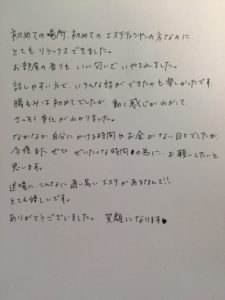 初めての場所、初めてのエステティシャンの方なのに、
とてもリラックスできました。
お部屋の香りもいい匂いでいやされました。
話しやすい方で、いろんな話ができたのも楽しかったです。
腸もみは初めてでしたが、動く感じがわかって、
さっそく変化がわかりました。
なかなか自分にかける時間やお金がない日々でしたが、
今後またぜひ ぜいたくな時間の為に、お願いしたいと
思います。
近場にこんなに通い易いエステがあるなんて!!
とても嬉しいです。
ありがとうございました。笑顔になります♥